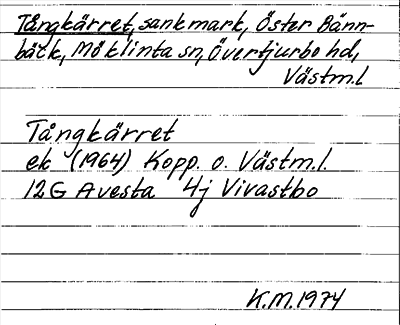 Tångkärret, sankmark, Öster Bänn-
bäck, Möklinta sn, Övertjurbo hd,
Västm.l
Tångkärret
ek (1964) Kopp. o. Västm.l.
12G Avesta 4j Vivastbo
K.M. 1974